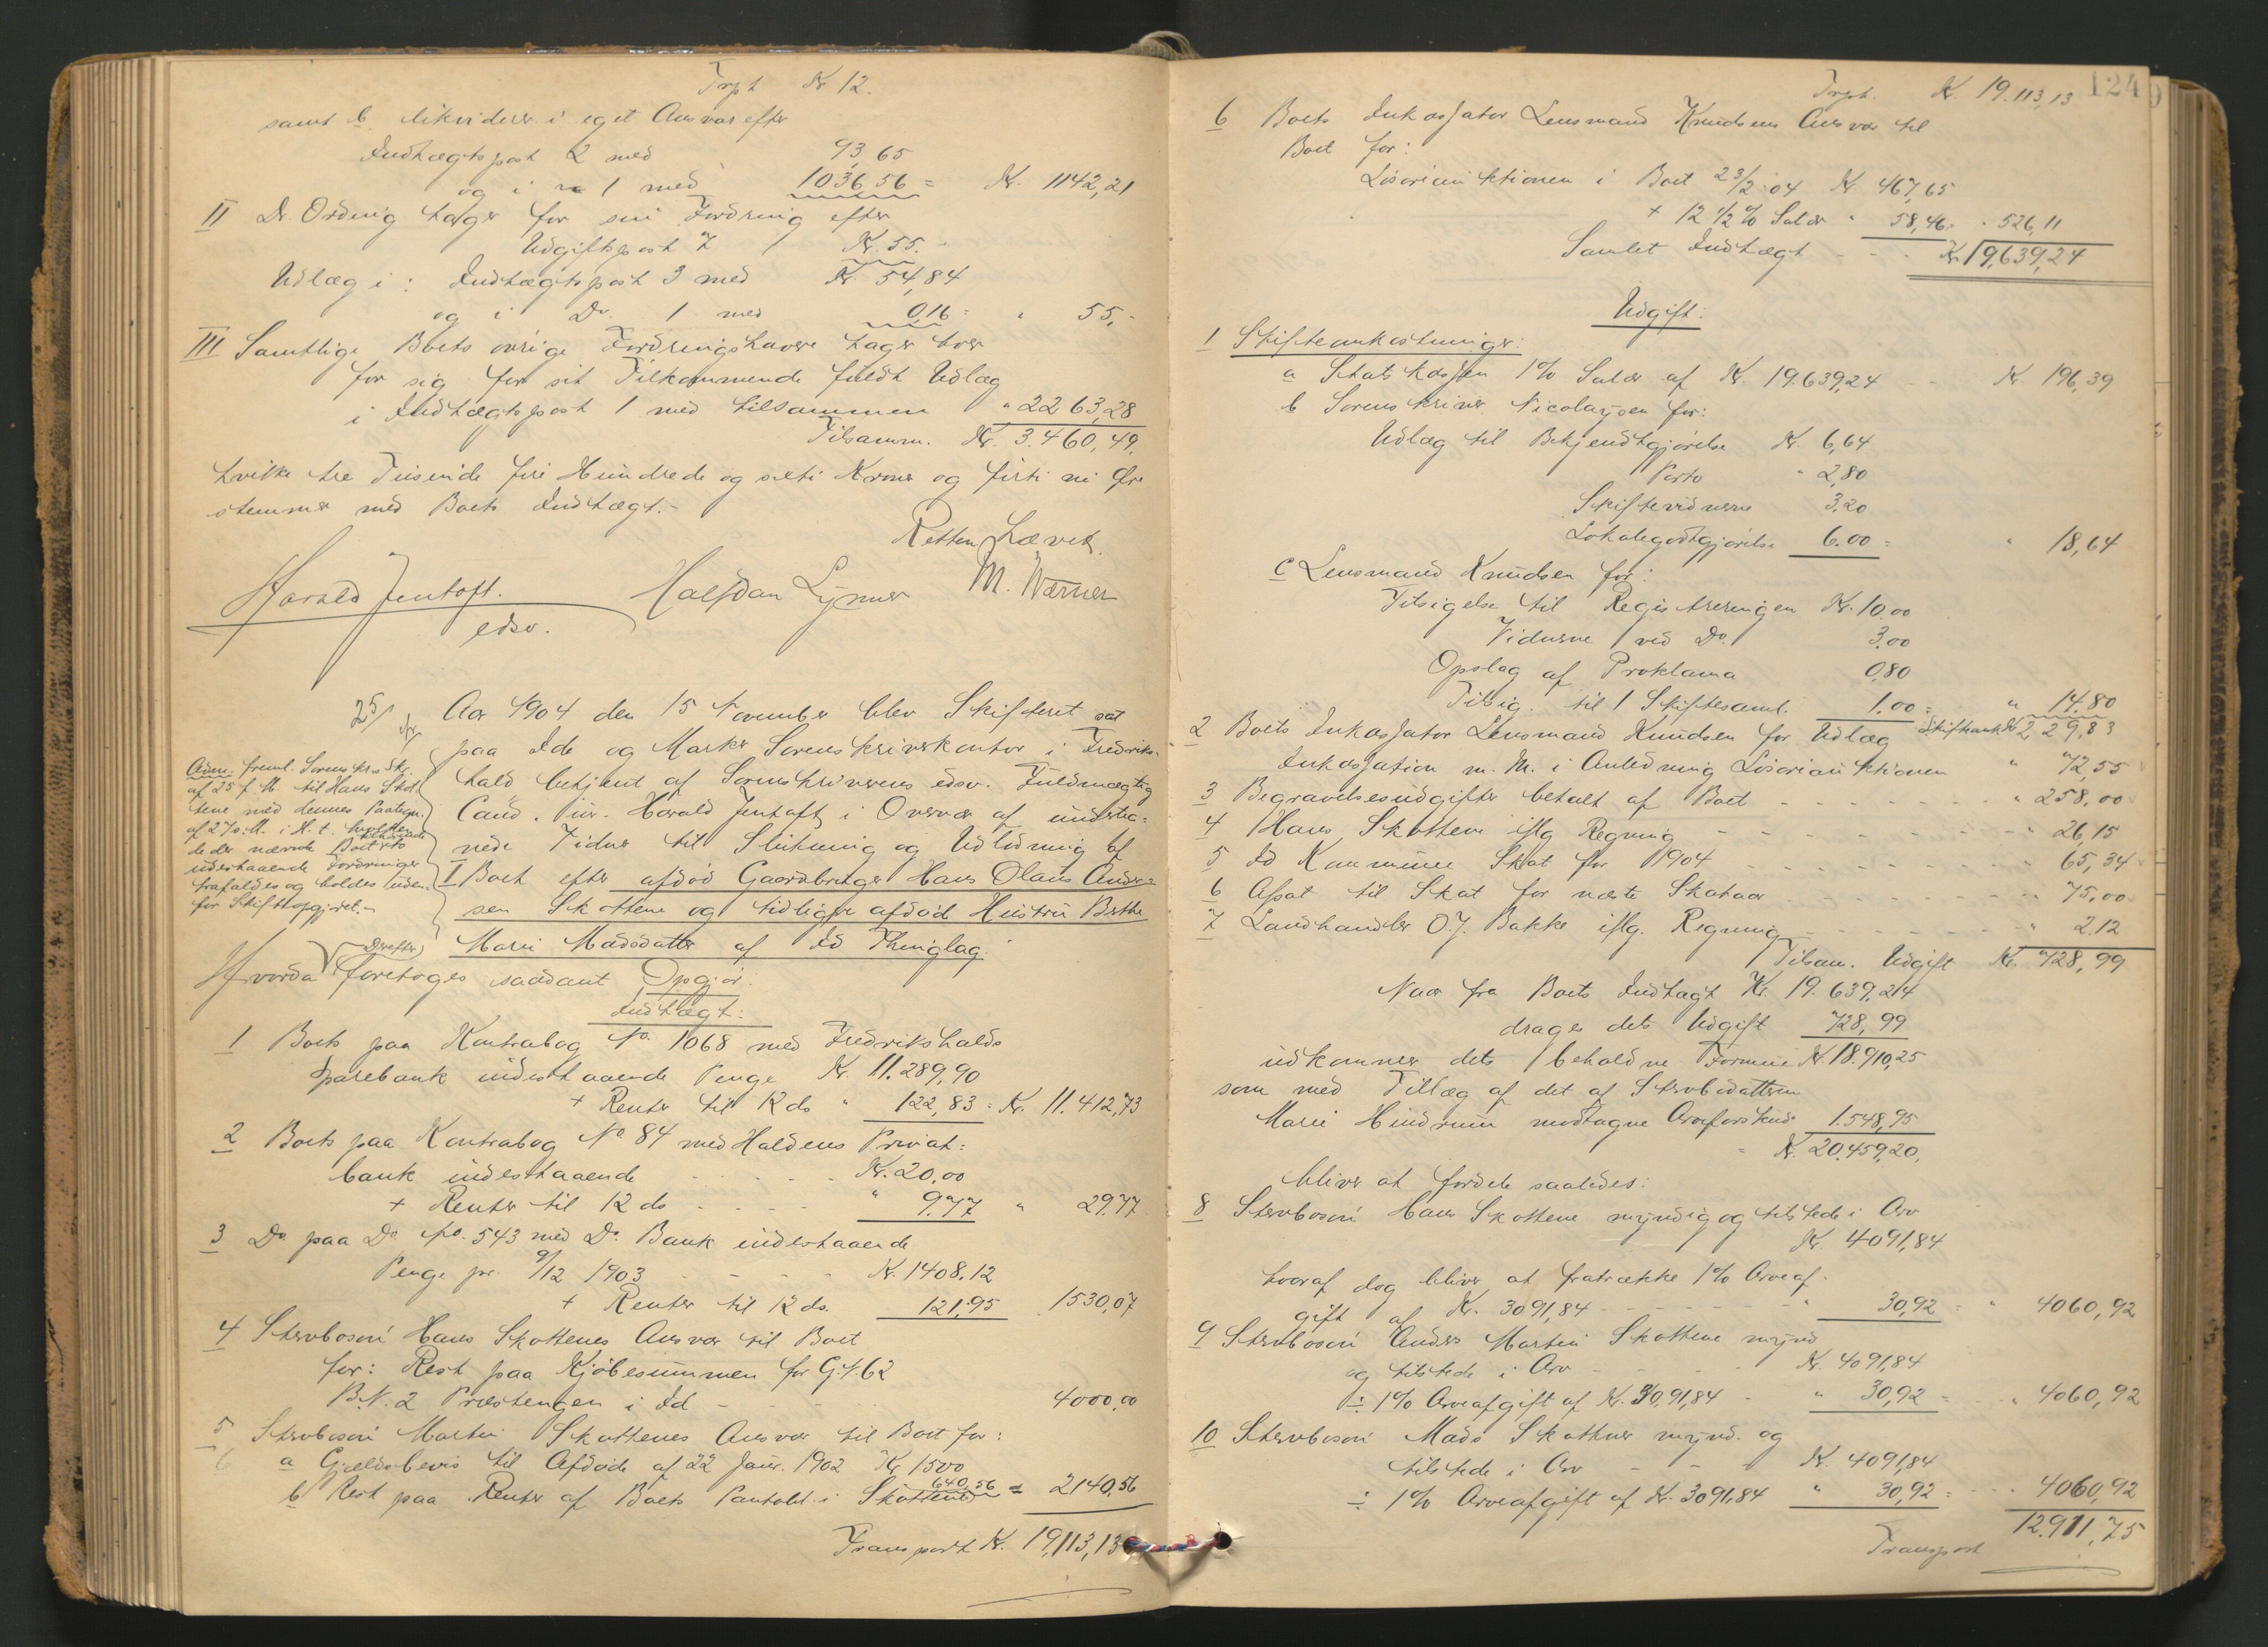 Trpt Kr 12.
samt b. likviderer i eget Ansvar efter
Indtægtspost 2 med 93,65
og i " 1 med 1036,56 = Kr. 1142,21
II Dr. Ording tager for sin Fordring efter
Udgiftspost 7 Kr. 55.-
Udlæg i: Indtægtspost 3 med Kr. 54,84
og i Do. 1 med 0,16 = " 55,-
III Samtlige Boets øvrige Fordringshavere tager hver
for sig for sit Tilkommende fuldt Udlæg
i Indtægtspost 1 med tilsammen " 2263,28
Tilsamm. Kr. 3.460,49,
hvilke tre Tusinde fire Hundrede og sexti Kroner og firti ni Øre
stemmer med Boets Indtægt.-
Retten hævet.
Harald Jentoft. Halfdan Lynner M. Wærner
edsv.
Aar 1904 den 15 November blev Skifteret sat
paa Idde og Marker Sorenskriverkontor i Fredriks-
hald betjent af Sorenskriverens edsv. Fuldmægtig
Cand. jur. Harald Jentoft i Overvær af underteg-
nede Vidner til Slutning og Udlodning af
I Boet efter afdød Gaardbruger Hans Olaus Ander-
sen Skottene og tidligere afdød Hustru Berthe
Marie Madsdatter af Id Thinglag.
25/ jfr
Adm. freml. Sorenskr.s Skr.
af 25 f. M. til Hans Skot
tene med dennes Paategn.
af 27 s. M. i H. t. hvilken
de der nævnte Boet tilhørende
udestaaende Fordringer
frafaldes og holdes uden-
for Skifteopgjøret.-
Derefter
Hvorda foretoges saadant Opgjør:
Indtægt:
1 Boets paa Kontrabog No. 1068 med Fredrikshalds
Sparebank indestaaende Penge Kr. 11.289,90
+ Renter til 12 ds " 122,83 = Kr. 11.412,73
2 Boets paa Kontrabog No 84 med Haldens Privat-
bank indestaaende Kr. 20,00
+ Renter til 12 ds " 9,77 " 29,77
3 Do paa Do No. 543 med Do. Bank indestaaende
Penge pr. 9/12 1903 Kr. 1408,12
+ Renter til 12 ds. 121,95 1530,07
4 Stervbosøn Hans Skottenes Ansvar til Boet
for: Rest paa Kjøbesummen for G.N. 62
B.N. 2 Præstengen i Id 4000,00
5 Stervbosøn Martin Skottenes Ansvar til Boet for:
6 a Gjældsbevis til Afdøde af 22 Janr. 1902 Kr 1500
b Rest paa Renter af Boets Pantobl. i Skottene 640,56 = 2140,56
Transport Kr. 19,113,13
124
Trpt. Kr. 19.113,13
6 Boets Inkassator Lensmand Knudsens Ansvar til
Boet for:
Løsøreauktionen i Boet 23/2 04 Kr. 467,65
+ 12 1/2 % Salær " 58,46 = " 526,11
Samlet Indtægt Kr. 19,639,24
Udgift:
1 Skifteomkostninger:
a Statskassen 1% Salær af Kr. 19.639,24 Kr. 196,39
b Sorenskriver Nicolaysen for:
Udlæg til Bekjendtgjørelse Kr. 6,64
Porto " 2,80
Skiftevidnerne 3,20
Lokalegodtgjørelse 6.00 = " 18,64
c Lensmand Knudsen for:
Tilsigelse til Registreringen Kr. 10.00
Vidnerne ved Do. 3,00
Opslag af Proklama 0,80
Tilsig. til 1 Skiftesaml. 1.00 = " 14,80
Skifteomk. Kr 229,83
2 Boets Inkassator Lensmand Knudsen for Udlæg
Inkassation m. M. i Anledning Løsøreauktionen " 72,55
3 Begravelsesudgifter betalt af Boet " 258,00
4 Hans Skottene iflg Regning " 26,15
5 Id Kommune Skat for 1904 " 65,34
6 Afsat til Skat for næste Skataar " 75,00
7 Landhandler O.J. Bakke iflg. Regning " 2.12
Tilsam. Udgift Kr. 728,99
Naar fra Boets Indtægt Kr. 19.639,24
drages dets Udgift 728,99
udkommer dets behaldne Formue Kr. 18.910,25
som med Tillæg af det af Stervbodatteren
Marie Hindrum modtagne Arveforskud 1.548,95
Kr. 20.459,20,
bliver at fordele saaledes:
8 Stervbosøn Hans Skottene myndig og tilstede i Arv
Kr. 4091,84
hvoraf dog bliver at fratrække 1% Arveaf-
gift af Kr. 3091,84 " 30,92 = " 4060,92
9 Stervbosøn Anders Martin Skottene mynd
og tilstede i Arv Kr. 4091,84
÷ 1% Arveafgift af Kr. 3091,84 " 30,92 = " 4060,92
10 Stervbosøn Mads Skottene mynd. og
tilstede i Arv Kr. 4091,84
÷ 1% Arveafgift af Kr. 3091,84 " 30,92 = 4060,92
Transport 12.911,75